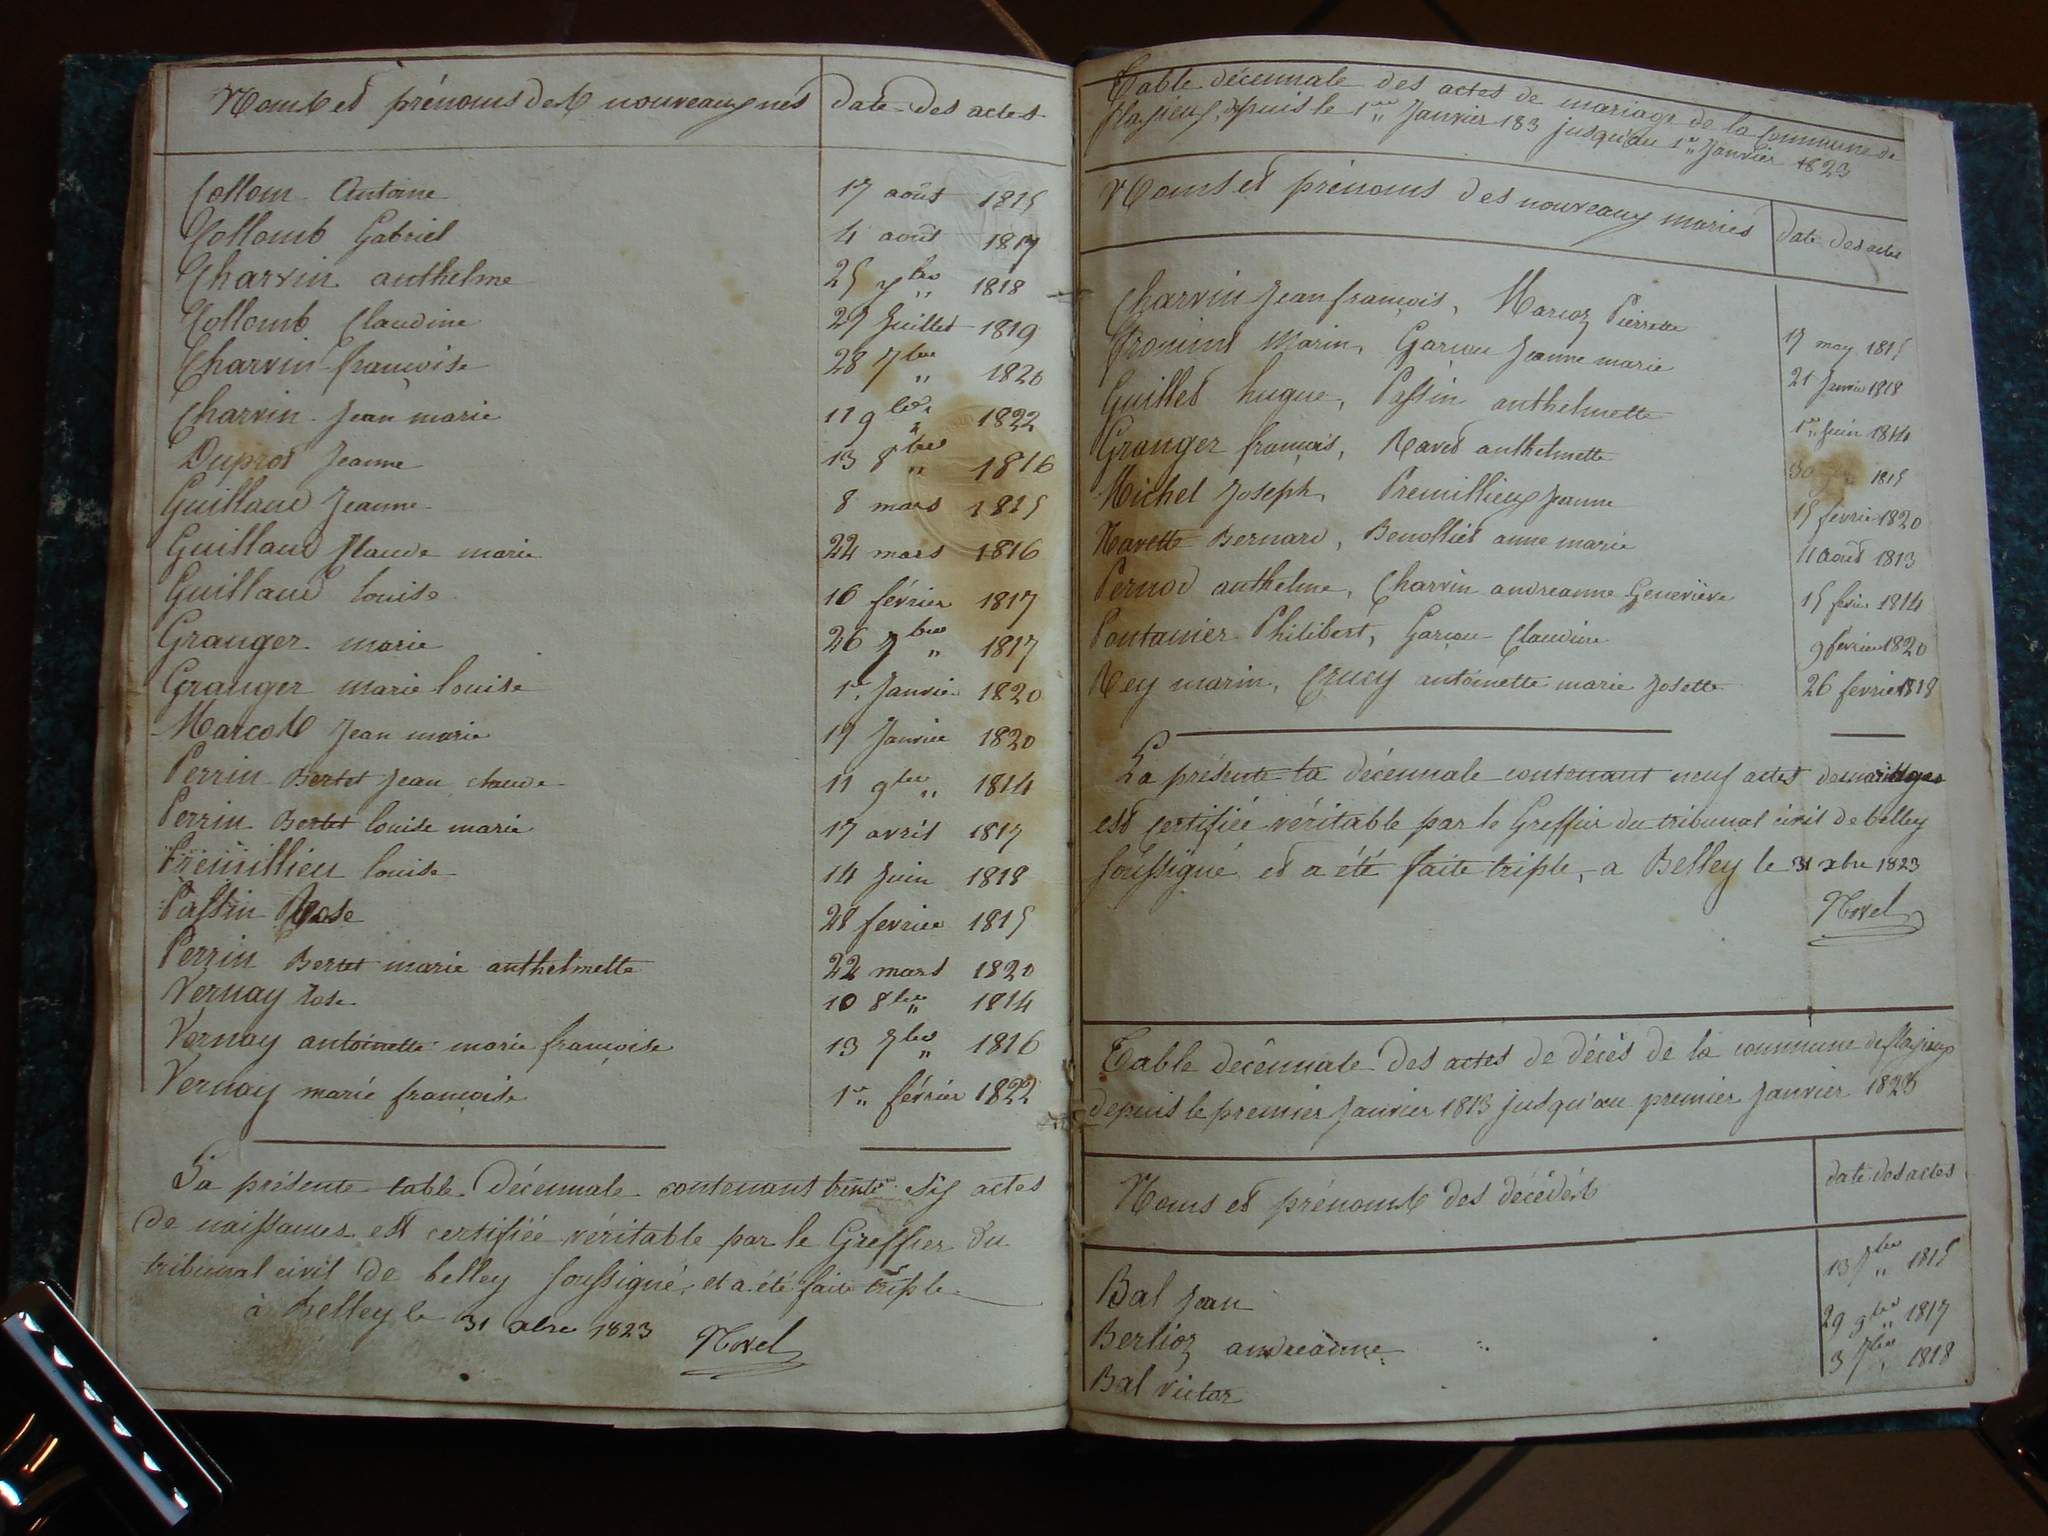 Noms et prénoms des nouveaux nés date des actes
Collom Antoine 17 août 1815
Collomb Gabriel 4 août 1817
Charvin anthelme 25 7bre 1818
Collomb Claudine 27 Juillet 1819
Charvin françoise 28 7bre 1820
Charvin Jean marie 11 9bre 1822
Duprat Jeanne 13 8bre 1816
Guilland Jeanne 8 mars 1815
Guilland Claude marie 22 mars 1816
Guilland louise 16 février 1817
Granger marie 26 7bre 1817
Granger marie louise 1er Janvier 1820
Marcoz Jean marie 19 Janvier 1820
Perrin Bertet Jean claude 11 9bre 1814
Perrin Bertet louise marie 17 avril 1817
Premillieu louise 14 Juin 1818
Passin Rose 28 fevrier 1815
Perrin Bertet marie anthelmette 22 mars 1820
Vernay rose 10 8bre 1814
Vernay antoinette marie françoise 13 7bre 1816
Vernay marie françoise 1er février 1822
La présente table Décennale contenant trente six actes
de naissances est certifiée véritable par le Greffier du
tribunal civil de belley soussigné, et a été faite triple
à Belley le 31 xbre 1823 Novel
Table décennale des actes de mariage de la Commune de
depuis le 1er Janvier 183 jusqu'au 1er Janvier 1823
Noms et prénoms des nouveaux mariés date des actes
Charvin Jean françois, Marcoz Pierrette 17 may 1815
Marin, Garçon Jeanne marie 21 Janvier 1818
Guillet hugue, Passin anthelmette 1er Juin 1814
Granger françois, Ravet anthelmette 30 1815
Michel Joseph, Premillieux Jeanne 15 fevrier 1820
Navette Bernard, Benolliet anne marie 11 août 1813
Pernod anthelme, Charvin andreanne Geneviève 15 fevrier 1814
Pontanier Philibert, Garçon Claudine 9 fevrier 1820
Rey marin, Crucy antoinette marie Josette 26 fevrier 1818
La présente ta décennale contenant neuf actes de mariages
est certifiée véritable par le Greffier du tribunal civil de belley
soussigné et a été faite triple, a Belley le 31 xbre 1823
Novel
Table décennale des actes de décès de la commune de
depuis le premier Janvier 1813 jusqu'au premier Janvier 1823
Noms et prénoms des décédés date des actes
Bal Jean 13 7bre 1815
Berlioz andréanne 29 9bre 1817
Bal victor 3 7bre 1818